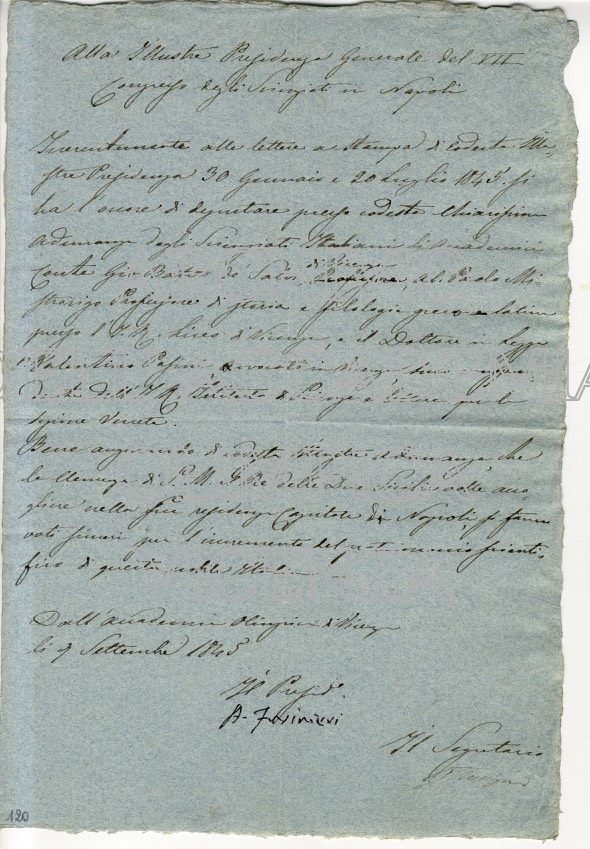 Alla Illustre Presidenza Generale del VII
Congresso degli Scienziati in Napoli
Inerentemente alle lettere a stampa di codesta Illu-
stre Presidenza 30 Gennaio e 20 Luglio 1845 si
ha l'onore di deputare presso codesta Chiarissima
adunanza degli Scienziati Italiani li Accademici
di Vicenza
Conte Gio Batta de Salvi, al. Paolo Mi-
strorigo Professore di storia e filologia greca e latina
presso l'I. R. Liceo di Vicenza, e il Dottore in Legge
Valentino Pasini avvocato in Vicenza
dell'I. R. Istituto di Scienze e Lettere per le
Venete.
Bene augurando di codesta illustre adunanza, che
la clemenza di S. M. il Re delle Due Sicilie volle acco
gliere nella sua residenza Capitale di Napoli si fanno
voti sinceri per l'incremento del patrimonio scienti
fico di questa nobile Italia.
Dall'Accademia Olimpica di Vicenza
li 9 Settembre 1845
Il Presid.e
A.
Il Segretario
120